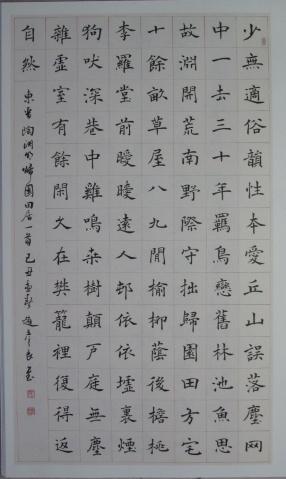 少無適俗韻性本愛丘山誤落塵网
中一去三十年羈鳥戀舊林池魚思
故淵開荒南野際守拙歸園田方宅
十餘畝草屋八九閒榆柳蔭後檐桃
李羅堂前曖曖遠人邨依依墟裏煙
狗吠深巷中雞鳴桒樹顛戶庭無塵
雜虛室有餘閑久在樊籠裡復得返
自然 東晉陶淵明歸園田居一首己丑